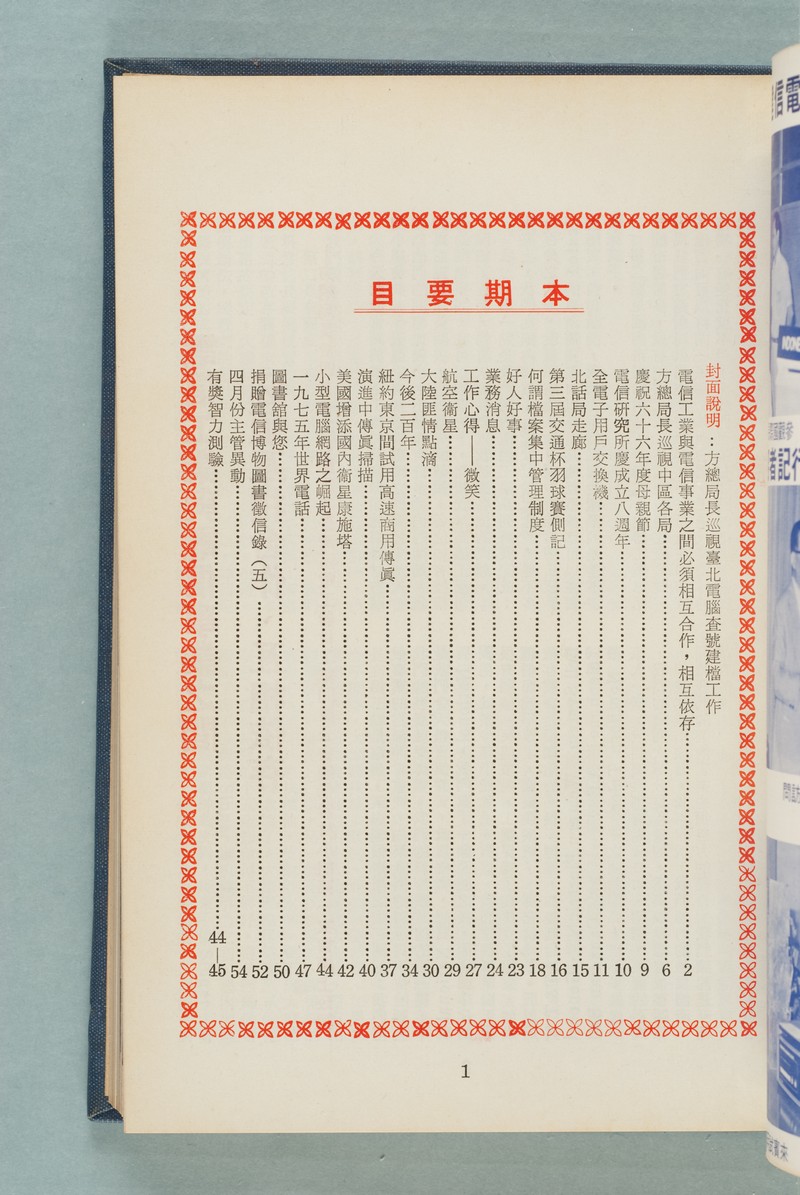 本期要目
封面說明：方總局長巡視臺北電腦查號建檔工作
電信工業與電信事業之間必須相互合作，相互依存 2
方總局長巡視中區各局 6
慶祝六十六年度母親節 9
電信研究所慶成立八週年 10
全電子用戶交換機 11
北話局走廊 15
第三屆交通杯羽球賽側記 16
何謂檔案集中管理制度 18
好人好事 23
業務消息 24
工作心得——微笑 27
航空衞星 29
大陸匪情點滴 30
今後二百年 34
紐約東京間試用高速商用傳眞 37
演進中傳眞掃描 40
美國增添國內衞星康施塔 42
小型電腦網路之崛起 44
一九七五年世界電話 47
圖書舘與您 50
捐贈電信博物圖書徵信錄（五） 52
四月份主管異動 54
有獎智力測驗 44—45
1